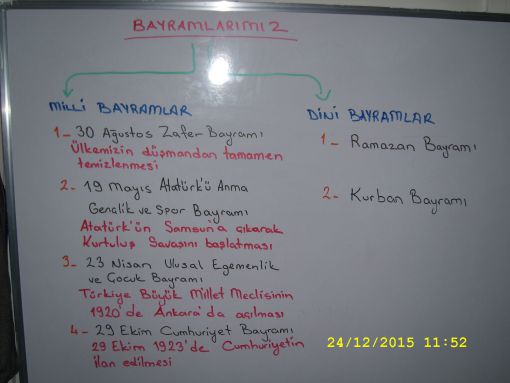 BAYRAMLARIMIZ
MİLLİ BAYRAMLAR
1- 30 Ağustos Zafer Bayramı
Ülkemizin düşmandan tamamen
temizlenmesi
2- 19 Mayıs Atatürk'ü Anma
Gençlik ve Spor Bayramı
Atatürk'ün Samsun'a çıkarak
Kurtuluş Savaşını başlatması
3- 23 Nisan Ulusal Egemenlik
ve Çocuk Bayramı
Türkiye Büyük Millet Meclisinin
1920'de Ankara'da açılması
4- 29 Ekim Cumhuriyet Bayramı
29 Ekim 1923'de Cumhuriyetin
ilan edilmesi
DİNİ BAYRAMLAR
1- Ramazan Bayramı
2- Kurban Bayramı
24/12/2015 11:52